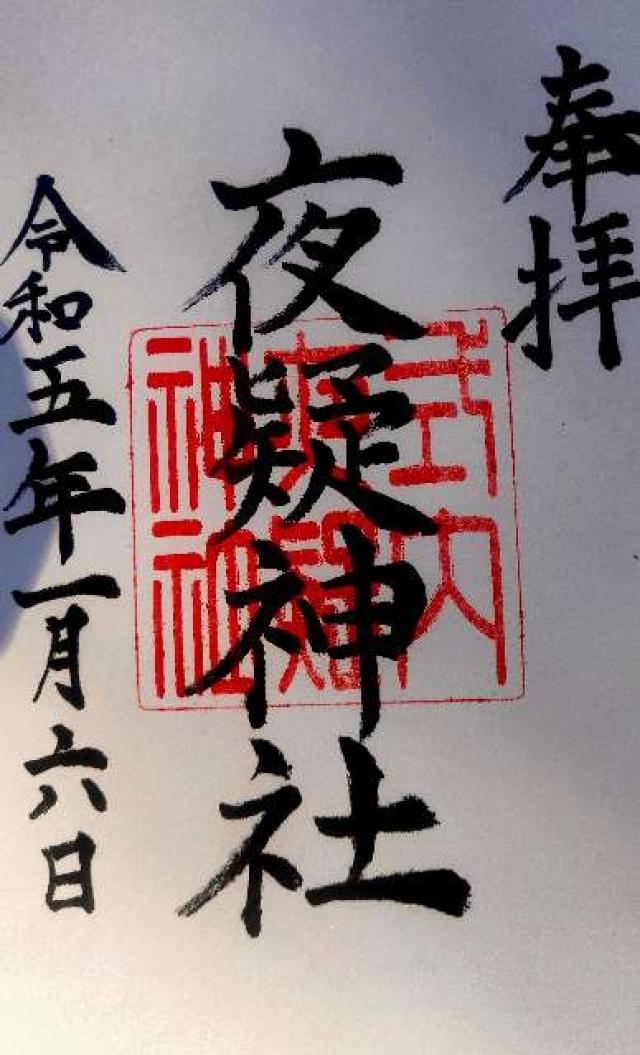 奉拝
夜疑神社
式内
夜疑
神社
令和五年一月六日